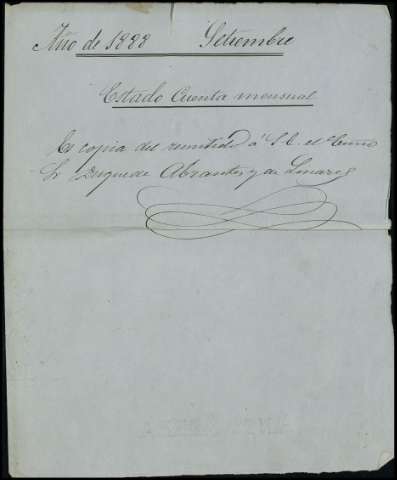 Año de 1888 Setiembre
Estado Cuenta mensual
Es copia del remitido á S. E. el Excmo
Sr Duque de Abrantes y de Linares